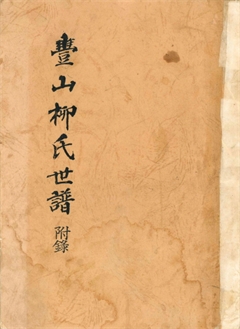 豊山柳氏世譜
附錄